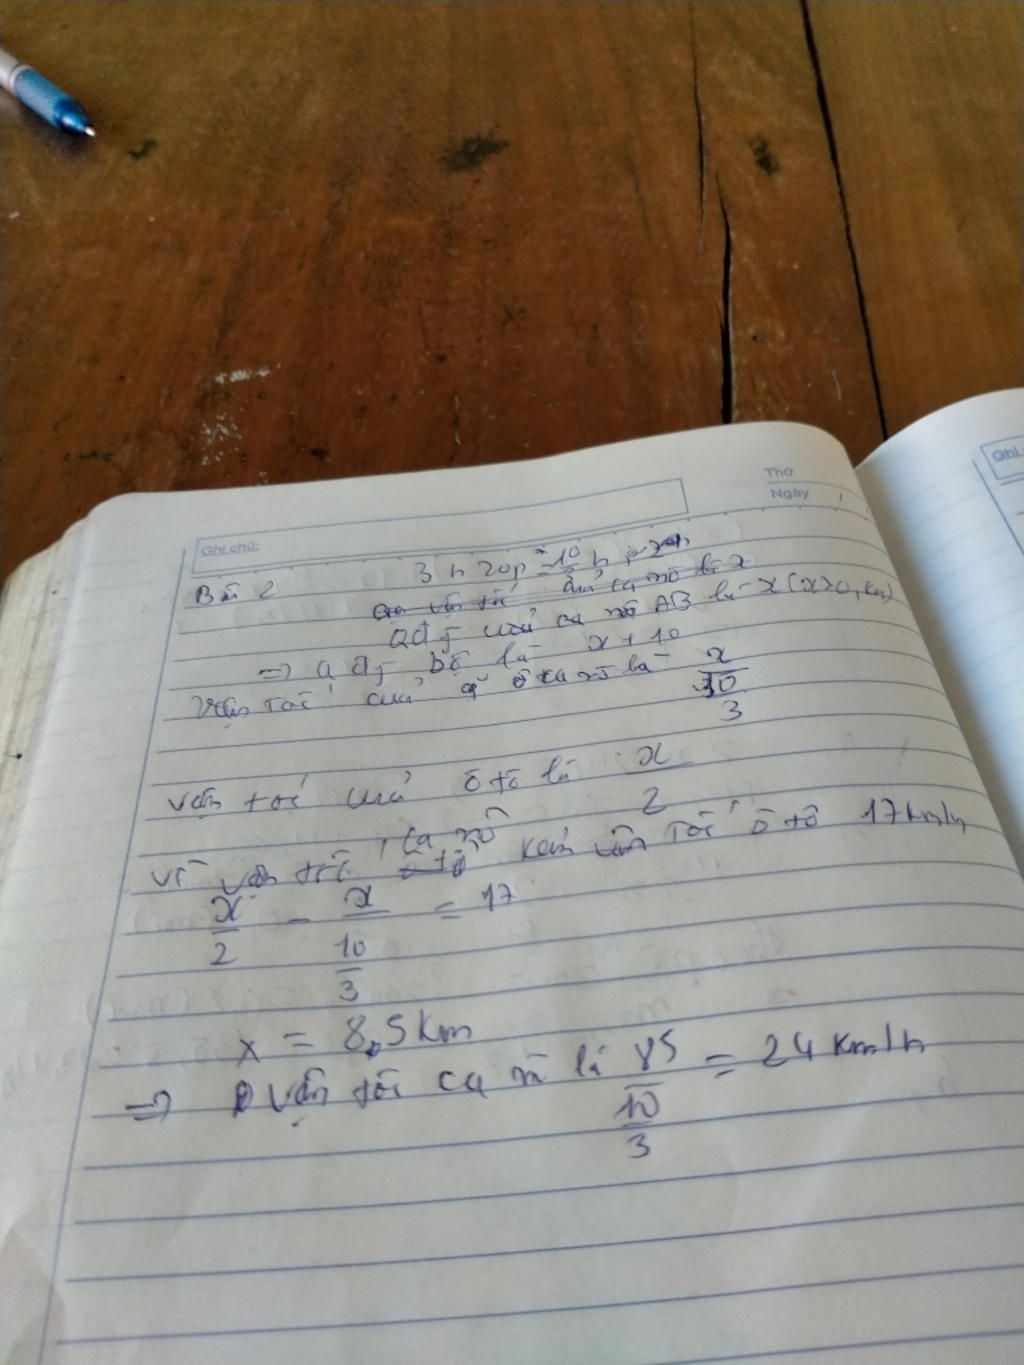 Thứ
Ngày
Ghi chú:
Ghi
Bài 2
3 h 20p = 10/3 h
Qđg của ca nô AB là x (x>0, km)
=> Qđg bộ là x + 10
Vận tốc của ca nô là x/(10/3)
vận tốc của ô tô là x/2
vì vận tốc ca nô kém vận tốc ô tô 17km/h
x/2 - x/(10/3) = 17
x = 8,5km
=> vận tốc ca nô là 85/(10/3) = 24 km/h